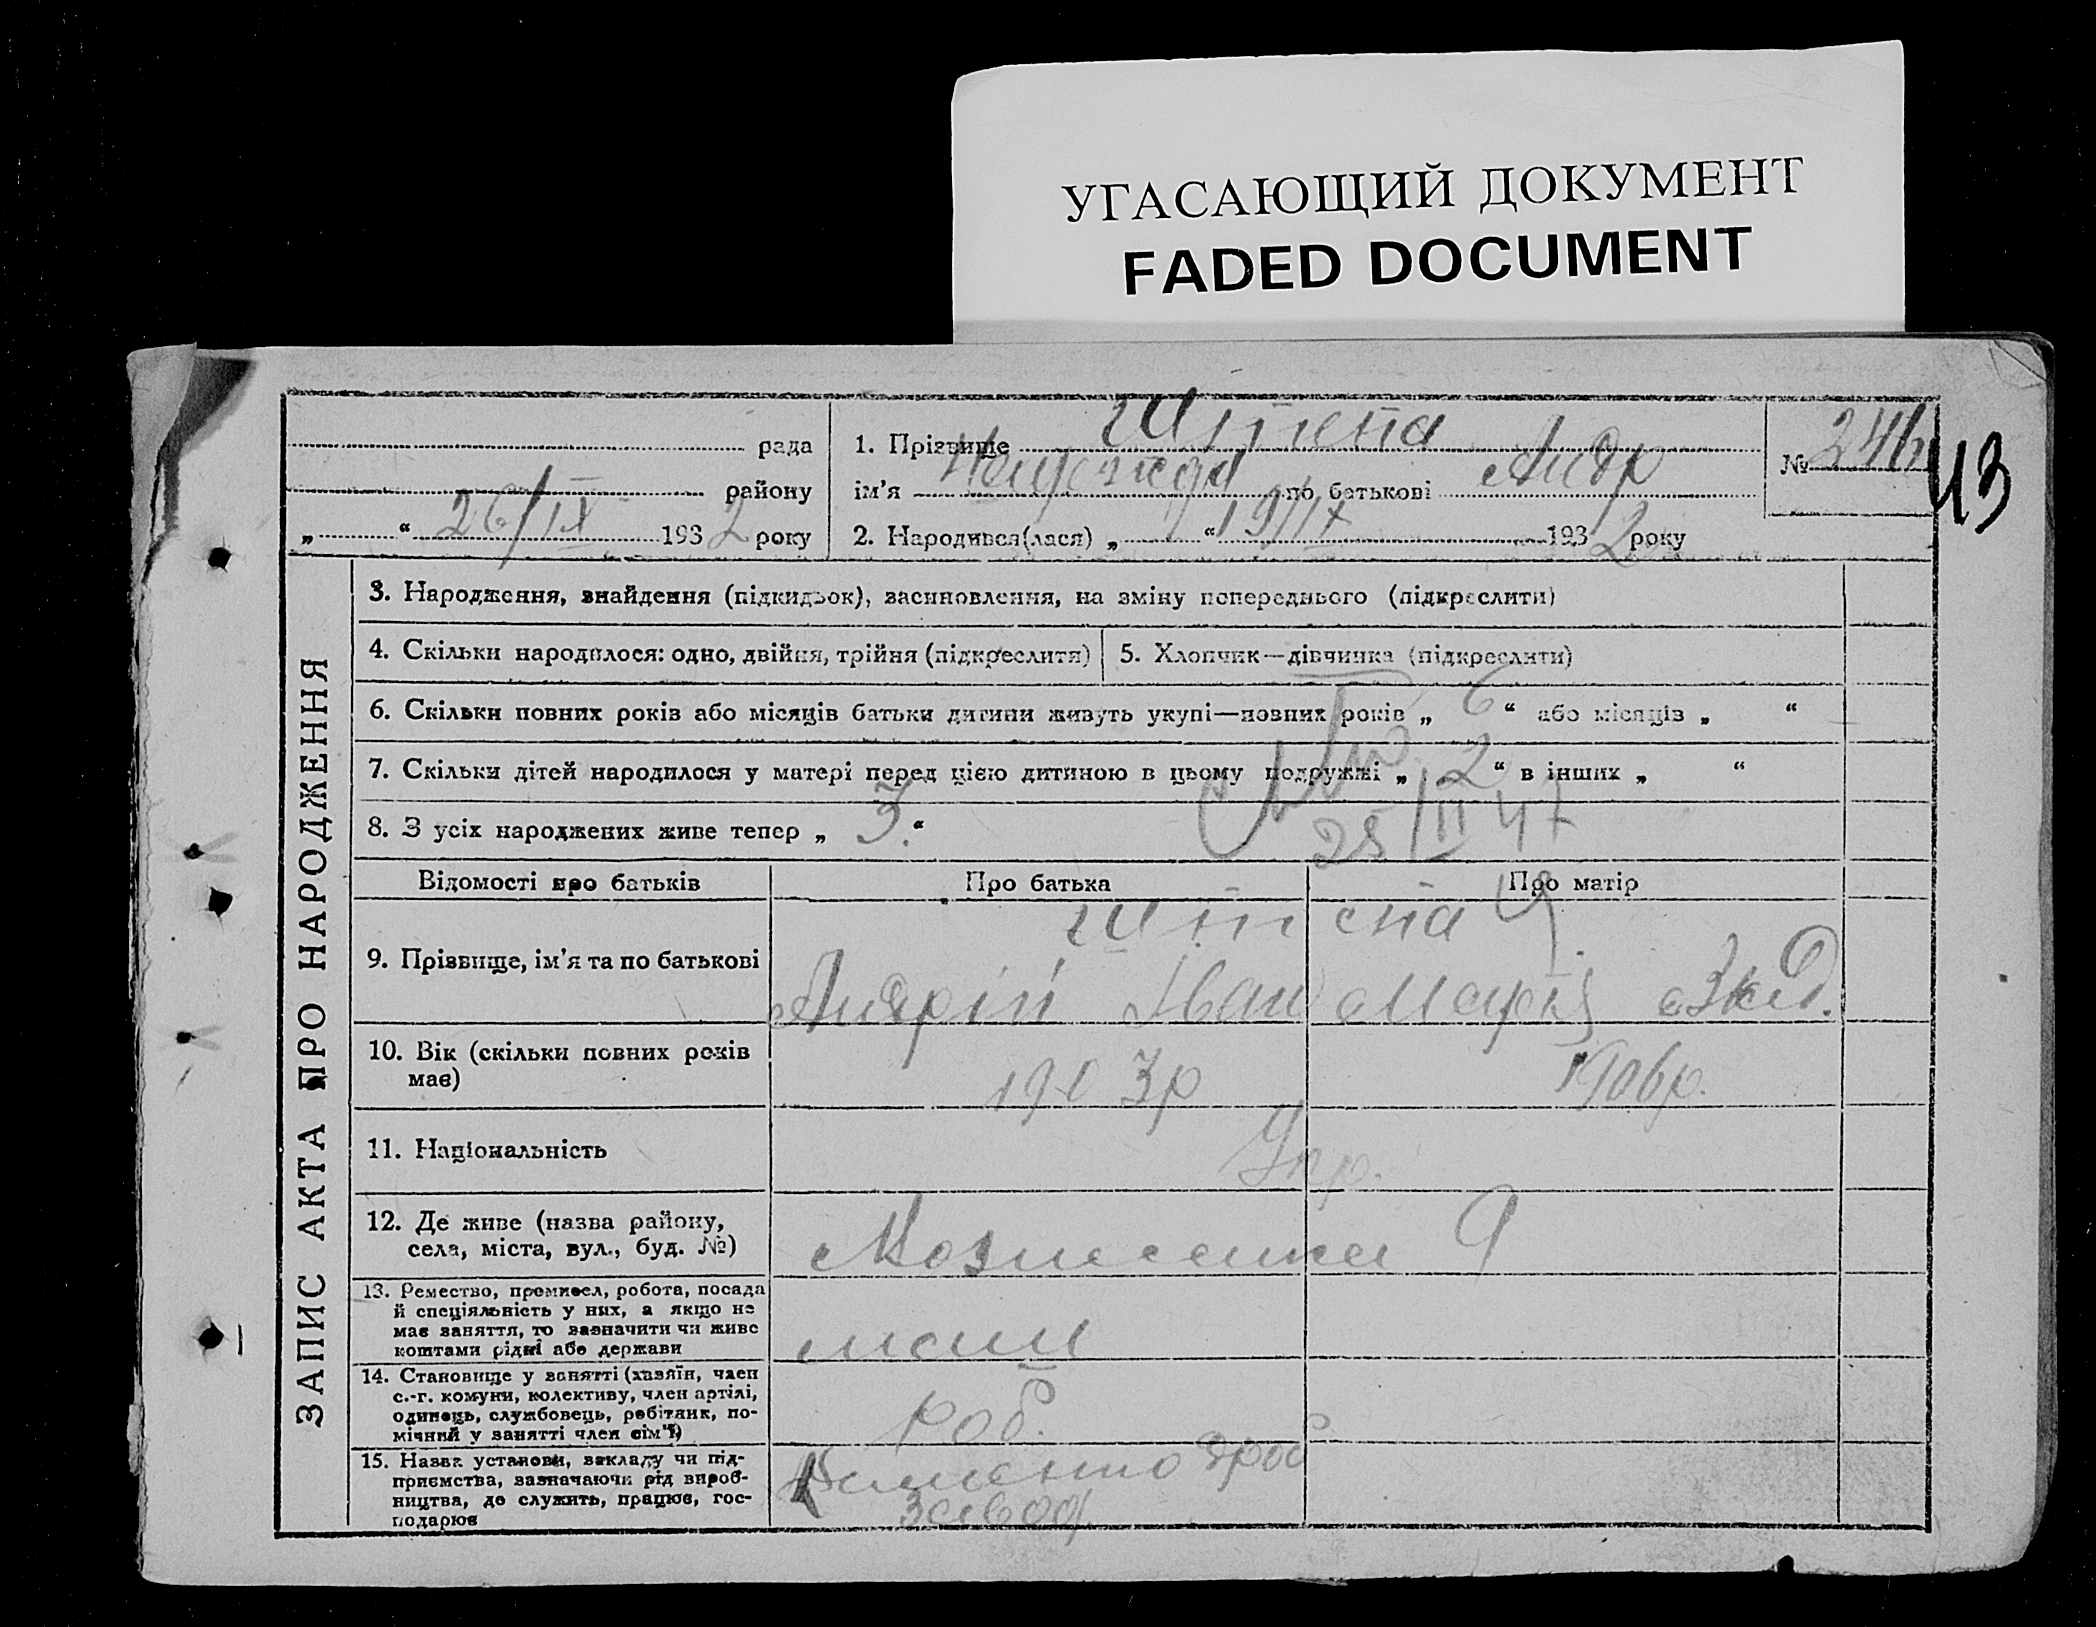 УГАСАЮЩИЙ ДОКУМЕНТ
FADED DOCUMENT
рада
району
„ “ 26/IX 1932 року
1. Прізвище Штепа
ім'я по батькові Андр
2. Народився(лася) „ “ 19/IX 1932 року
№ 246
43
ЗАПИС АКТА ПРО НАРОДЖЕННЯ
3. Народження, знайдення (підкидьок), засиновлення, на зміну попереднього (підкреслити)
4. Скільки народилося: одно, двійня, трійня (підкреслити)
5. Хлопчик—дівчинка (підкреслити)
6. Скільки повних років або місяців батьки дитини живуть укупі—повних років „ 6 “ або місяців „ “
7. Скільки дітей народилося у матері перед цією дитиною в цьому подружжі „ 2 “ в інших „ “
8. З усіх народжених живе тепер „ 3. “
25/II 47
Відомості про батьків
Про батька
Про матір
9. Прізвище, ім'я та по батькові
Штепа
Андрій Іван
Марія
10. Вік (скільки повних років
має)
1903р
1906р.
11. Національність
Укр.
12. Де живе (назва району,
села, міста, вул., буд. №)
Вознесенка 9
13. Ремество, промисел, робота, посада
й спеціяльність у них, а якщо не
має заняття, то зазначити чи живе
коштами рідні або держави
14. Становище у занятті (хазяїн, член
с.-г. комуни, колективу, член артілі,
одинець, службовець, робітник, по-
мічний у занятті член сім'ї)
роб.
15. Назва установи, закладу чи під-
приємства, зазначаючи рід вироб-
ництва, де служить, працює, гос-
подарює
завод